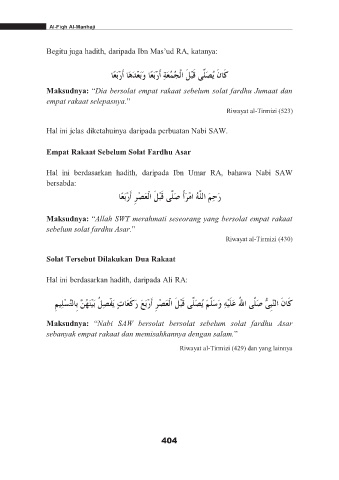 Al-Fiqh Al-Manhaji
Begitu juga hadith, daripada Ibn Mas'ud RA, katanya:
كَانَ يُصَلِّي قَبْلَ الْجُمُعَةِ أَرْبَعًا وَبَعْدَهَا أَرْبَعًا
Maksudnya: “Dia bersolat empat rakaat sebelum solat fardhu Jumaat dan
empat rakaat selepasnya.”
Riwayat al-Tirmizi (523)
Hal ini jelas diketahuinya daripada perbuatan Nabi SAW.
Empat Rakaat Sebelum Solat Fardhu Asar
Hal ini berdasarkan hadith, daripada Ibn Umar RA, bahawa Nabi SAW
bersabda:
رَحِمَ اللَّهُ امْرَأً صَلَّى قَبْلَ الْعَصْرِ أَرْبَعًا
Maksudnya: “Allah SWT merahmati seseorang yang bersolat empat rakaat
sebelum solat fardhu Asar.”
Riwayat al-Tirmizi (430)
Solat Tersebut Dilakukan Dua Rakaat
Hal ini berdasarkan hadith, daripada Ali RA:
كَانَ النَّبِيُّ صَلَّى اللهُ عَلَيْهِ وَسَلَّمَ يُصَلِّي قَبْلَ الْعَصْرِ أَرْبَعَ رَكَعَاتٍ يَفْصِلُ بَيْنَهُنَّ بِالتَّسْلِيمِ
Maksudnya: “Nabi SAW bersolat bersolat sebelum solat fardhu Asar
sebanyak empat rakaat dan memisahkannya dengan salam.”
Riwayat al-Tirmizi (429) dan yang lainnya
404